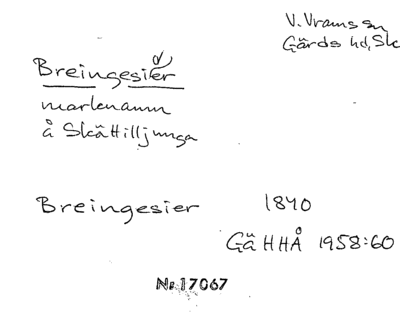 V. Vrams sn
Gärds hd, Sk
Breingesier
marknamn
å Skättilljunga
Breingesier 1840
Gä HHÅ 1958:60
Nr 17067